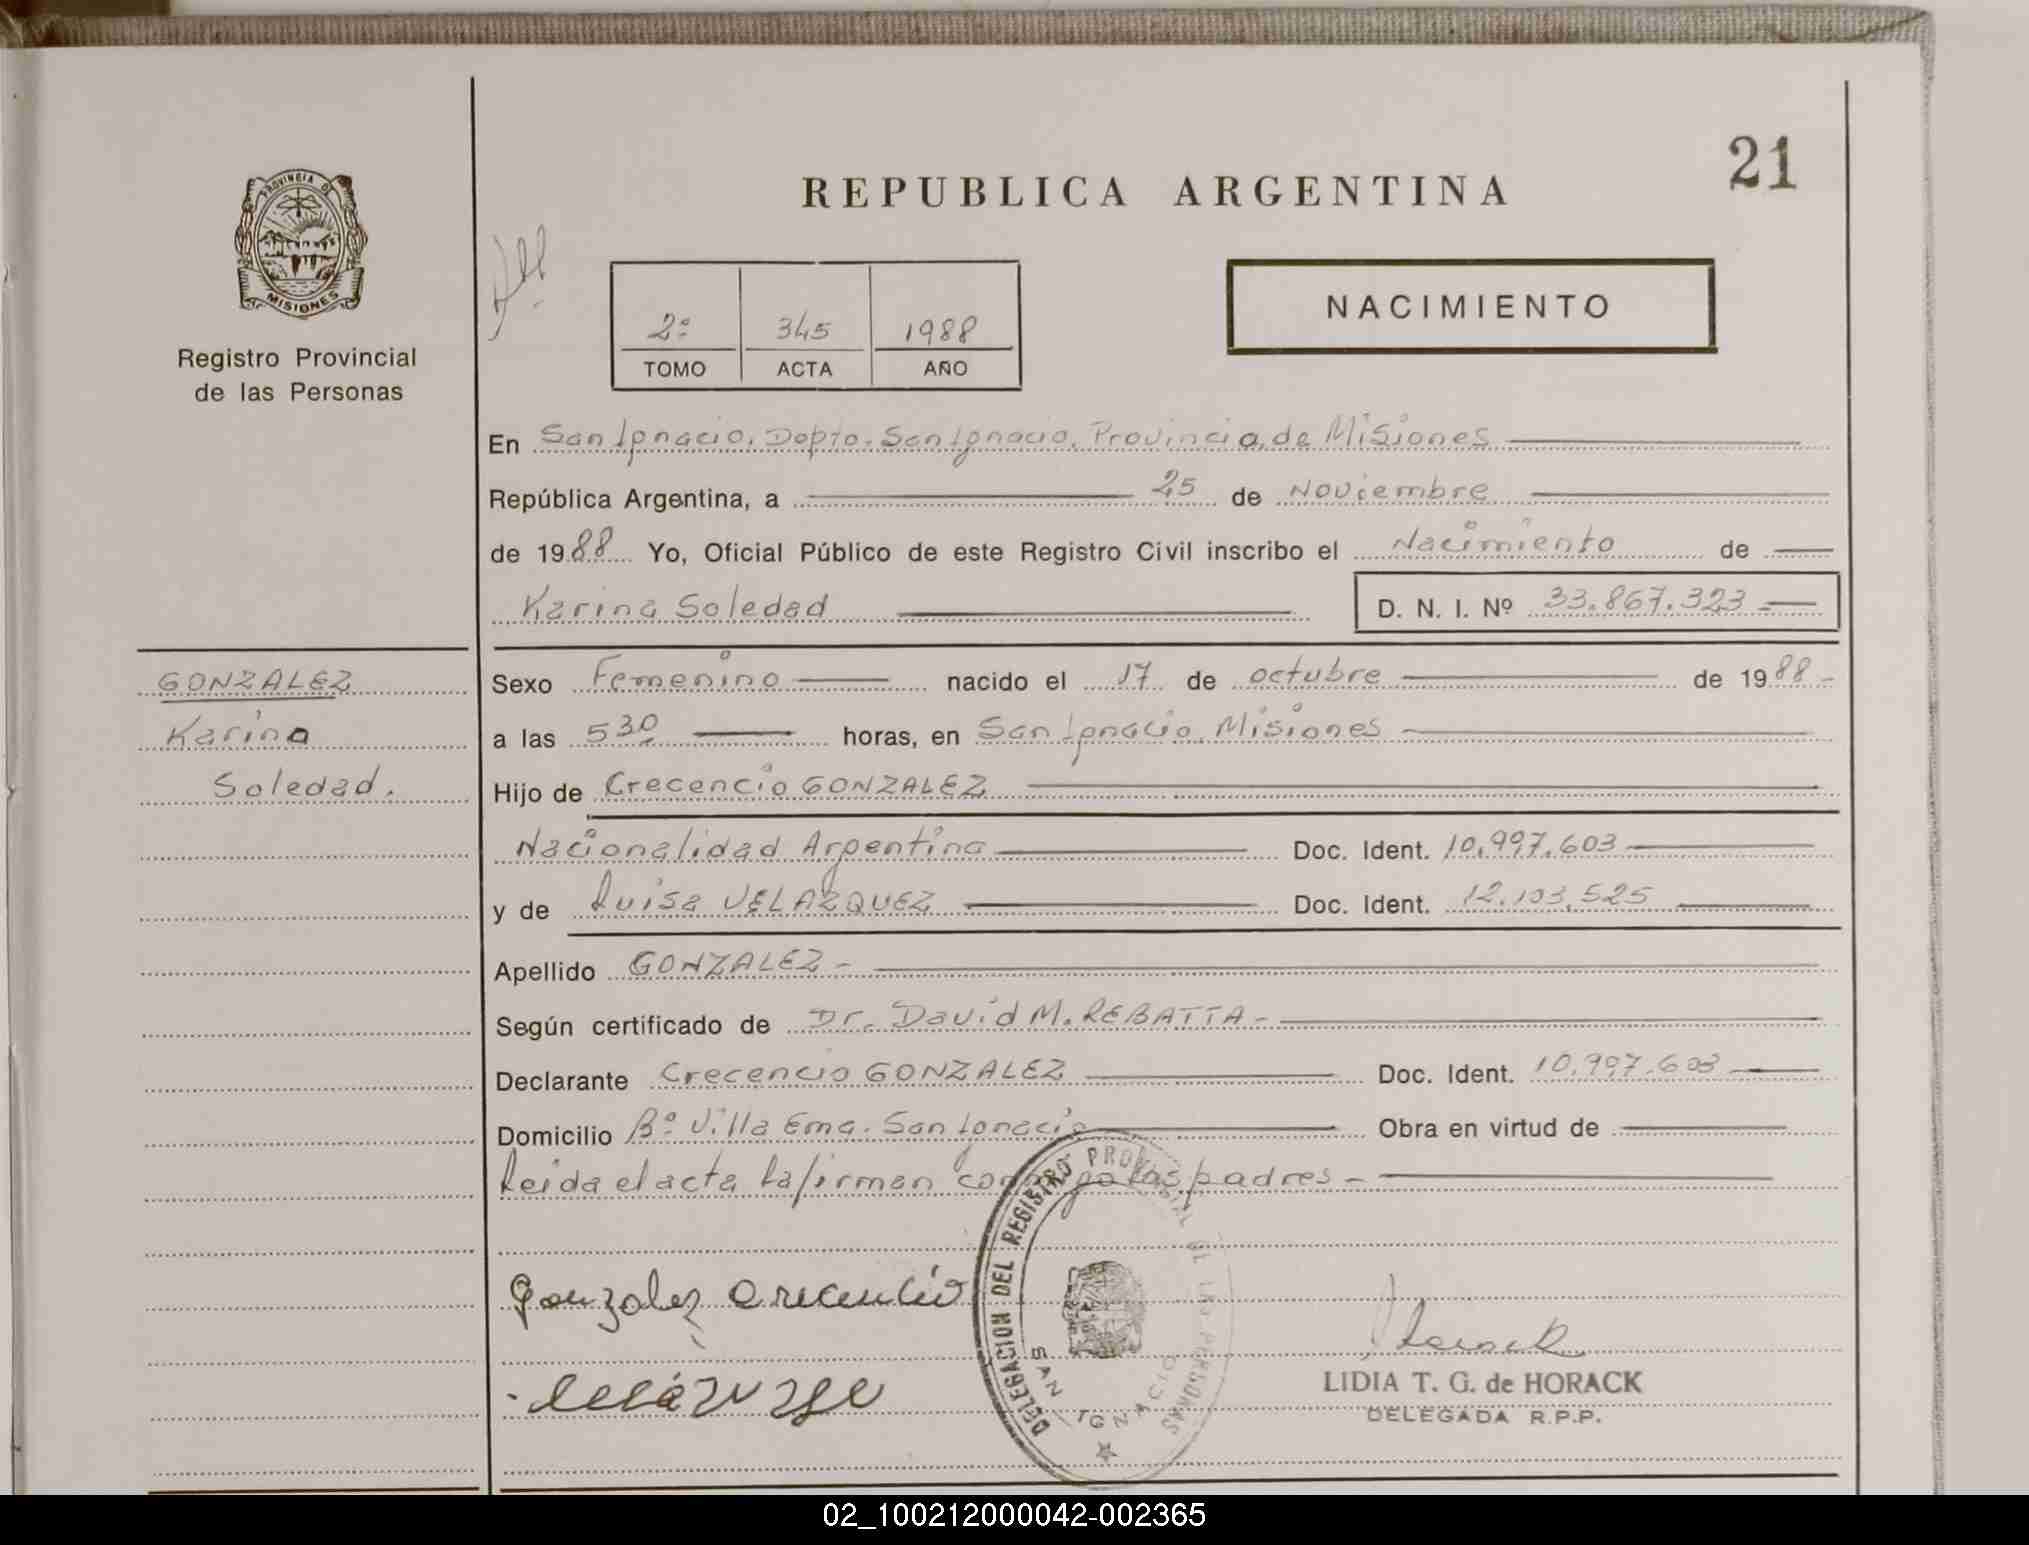 21
REPUBLICA ARGENTINA
PROVINCIA DE
MISIONES
Registro Provincial
de las Personas
2º 345 1988
TOMO ACTA AÑO
NACIMIENTO
En San Ignacio, Dpto. San Ignacio, Provincia de Misiones
República Argentina, a 25 de Noviembre
de 1988 Yo, Oficial Público de este Registro Civil inscribo el Nacimiento de
Karina Soledad D. N. I. Nº 33.867.323
GONZALEZ
Karina
Soledad.
Sexo Femenino nacido el 17 de octubre de 1988
a las 5 30 horas, en San Ignacio, Misiones
Hijo de Crecencio GONZALEZ
Nacionalidad Argentina Doc. Ident. 10.997.603
y de Luisa VELAZQUEZ Doc. Ident. 12.103.525
Apellido GONZALEZ
Según certificado de Dr. David M. REBATTA
Declarante Crecencio GONZALEZ Doc. Ident. 10.997.603
Domicilio Bº Villa Ema. San Ignacio Obra en virtud de
Leida el acta la firman conmigo los padres
Gonzalez Crecencio
DELEGACION DEL REGISTRO PROVINCIAL DE LAS PERSONAS
SAN IGNACIO
Horack
LIDIA T. G. de HORACK
DELEGADA R.P.P.
02_100212000042-002365